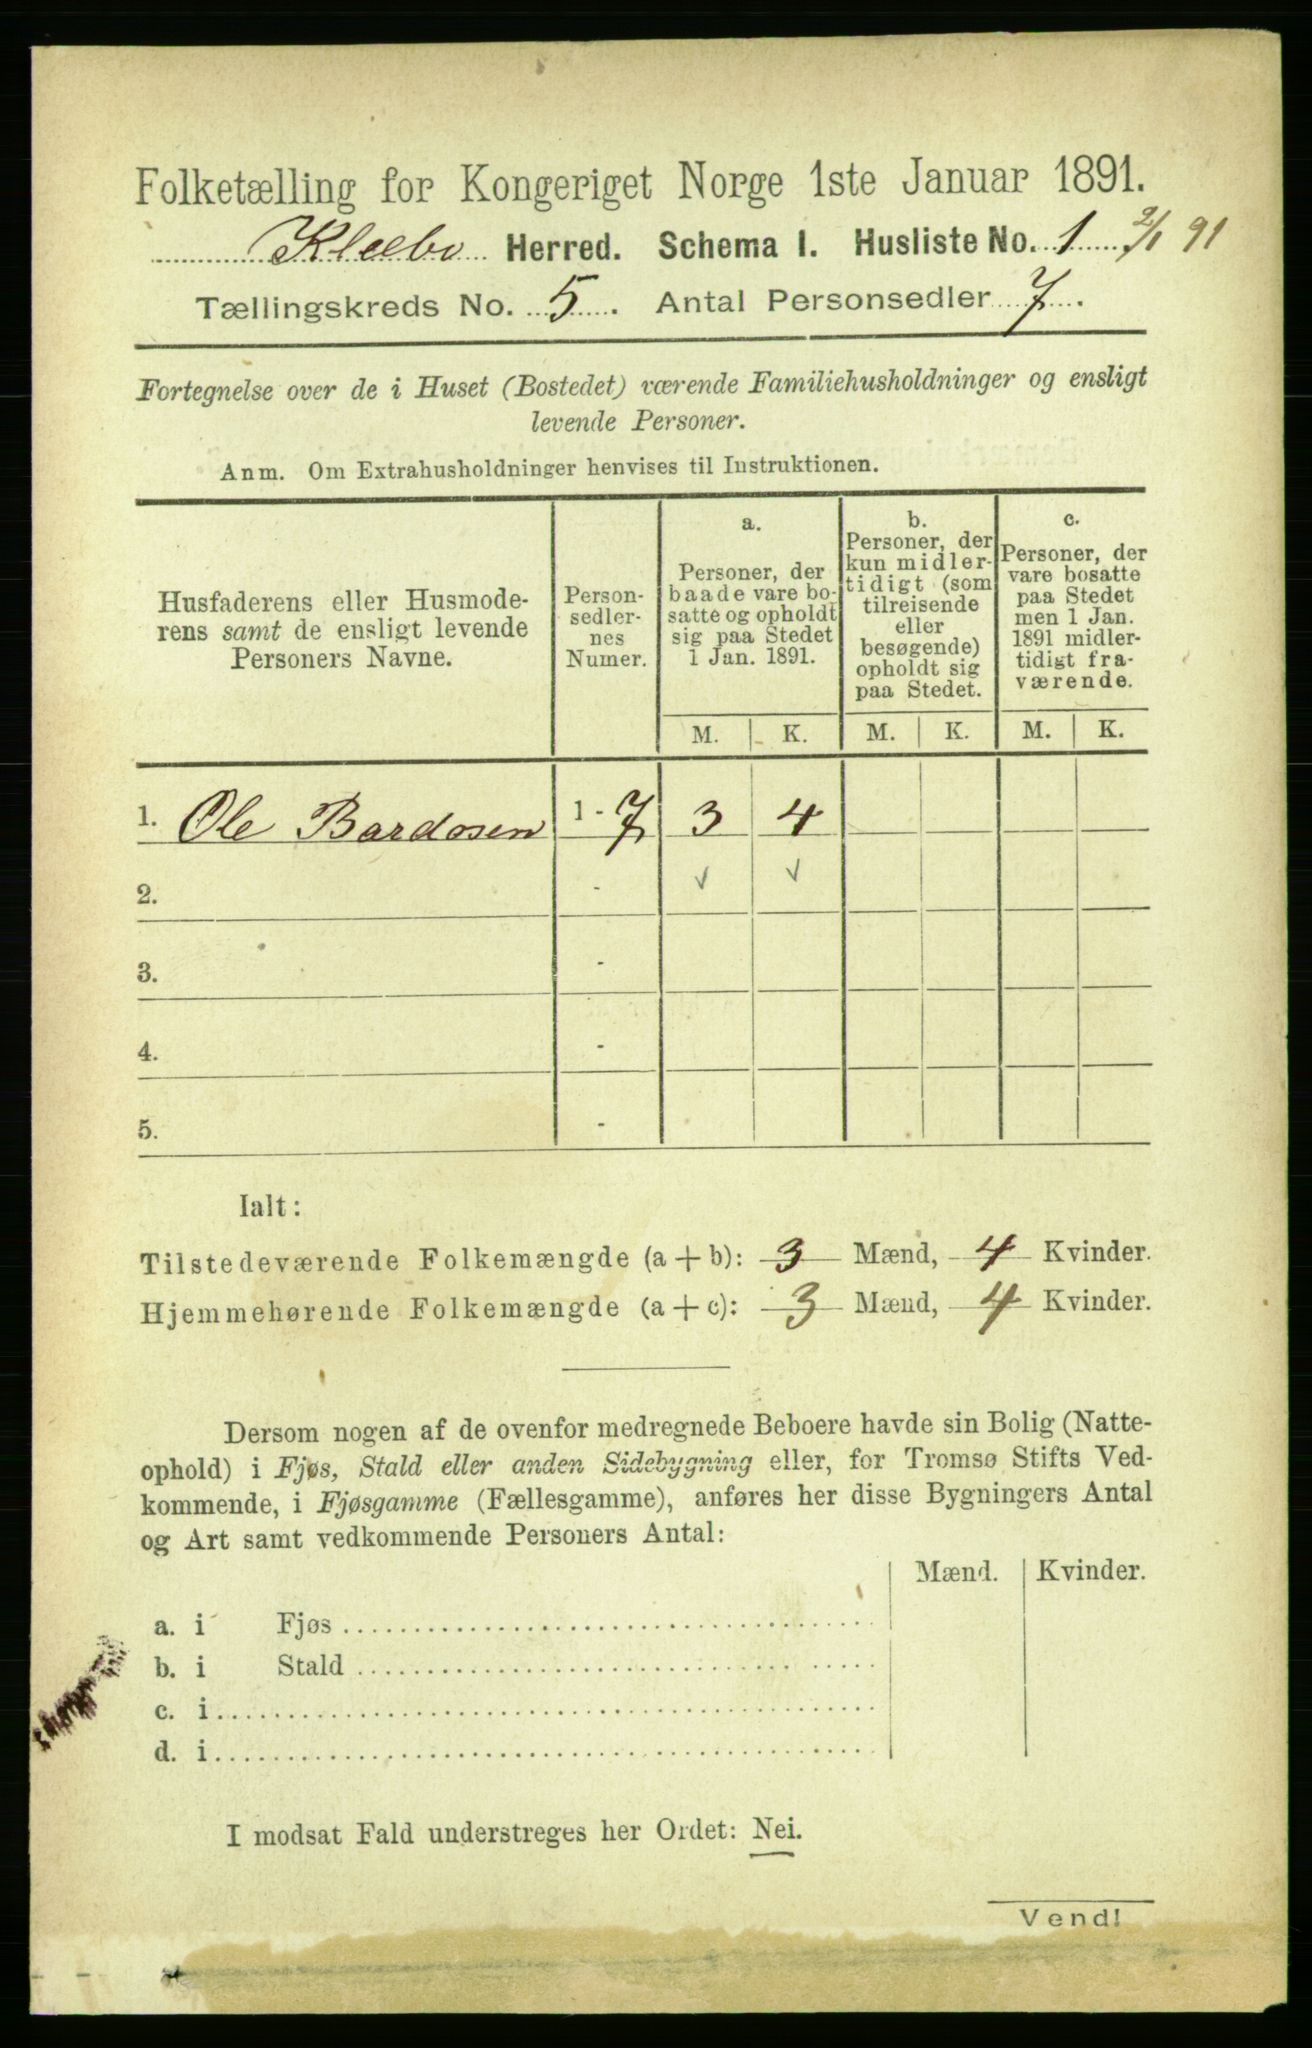 Folketælling for Kongeriget Norge 1ste Januar 1891.
Klæbo Herred. Schema I. Husliste No. 1 2/1 91
Tællingskreds No. 5. Antal Personsedler 7.
Fortegnelse over de i Huset (Bostedet) værende Familiehusholdninger og ensligt
levende Personer.
Anm. Om Extrahusholdninger henvises til Instruktionen.
Husfaderens eller Husmode-
rens samt de ensligt levende
Personers Navne.
Person-
sedler-
nes
Numer.
a.
Personer, der
baade vare bo-
satte og opholdt
sig paa Stedet
1 Jan. 1891.
b.
Personer, der
kun midler-
tidigt (som
tilreisende
eller
besøgende)
opholdt sig
paa Stedet.
c.
Personer, der
vare bosatte
paa Stedet
men 1 Jan.
1891 midler-
tidigt fra-
værende.
M. K. M. K. M. K.
1. Ole Bardosen 1 - 7 3 4
2. - √ √
3. -
4. -
5. -
Ialt:
Tilstedeværende Folkemængde (a + b): 3 Mænd, 4 Kvinder.
Hjemmehørende Folkemængde (a + c): 3 Mænd, 4 Kvinder.
Dersom nogen af de ovenfor medregnede Beboere havde sin Bolig (Natte-
ophold) i Fjøs, Stald eller anden Sidebygning eller, for Tromsø Stifts Ved-
kommende, i Fjøsgamme (Fællesgamme), anføres her disse Bygningers Antal
og Art samt vedkommende Personers Antal:
Mænd. Kvinder.
a. i Fjøs
b. i Stald
c. i
d. i
I modsat Fald understreges her Ordet: Nei.
Vend!